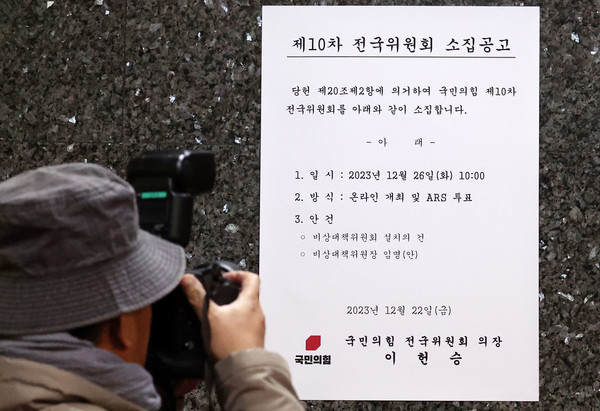 제10차 전국위원회 소집공고
당헌 제20조제2항에 의거하여 국민의힘 제10차
전국위원회를 아래와 같이 소집합니다.
- 아 래 -
1. 일 시 : 2023년 12월 26일(화) 10:00
2. 방 식 : 온라인 개최 및 ARS 투표
3. 안 건
○ 비상대책위원회 설치의 건
○ 비상대책위원장 임명(안)
2023년 12월 22일(금)
국민의힘 전국위원회 의장
국민의힘 이 헌 승